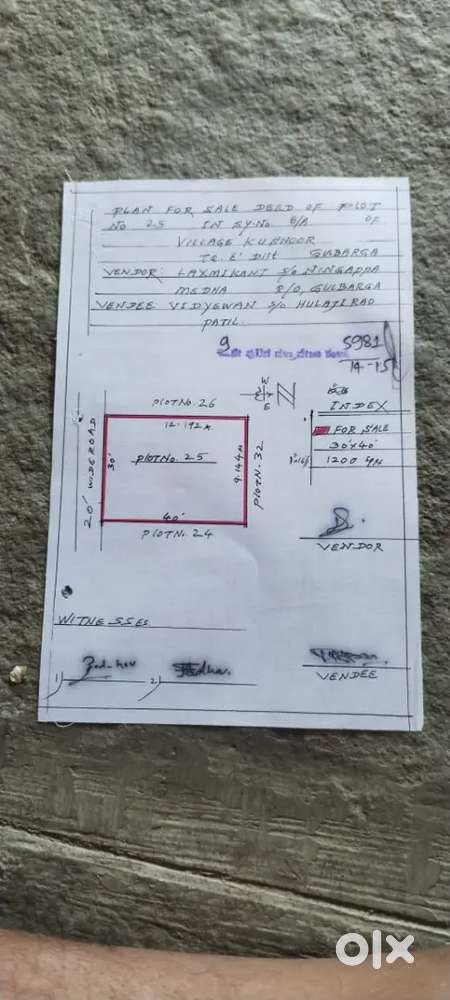 PLAN FOR SALE DEED OF PLOT
NO 25 IN SY.NO 6/A OF
VILLAGE KUSNOOR
TQ. & Dist GULBARGA
VENDOR: LAXMIKANT S/o NINGAPPA
MEDHA R/O, GULBARGA
VENDEE: VIDYEWAN S/o HULAJIRAO
PATIL.
9
5981
14-15
PLOT NO. 26
W
S
E
INDEX
FOR SALE
30'x40'
1200
20' WIDE ROAD
12.192 M.
30'
PLOT NO. 25
9.144 M
PLOT N. 32
40'
PLOT N. 24
VENDOR
WITNESSES
1)
2)
VENDEE
olx